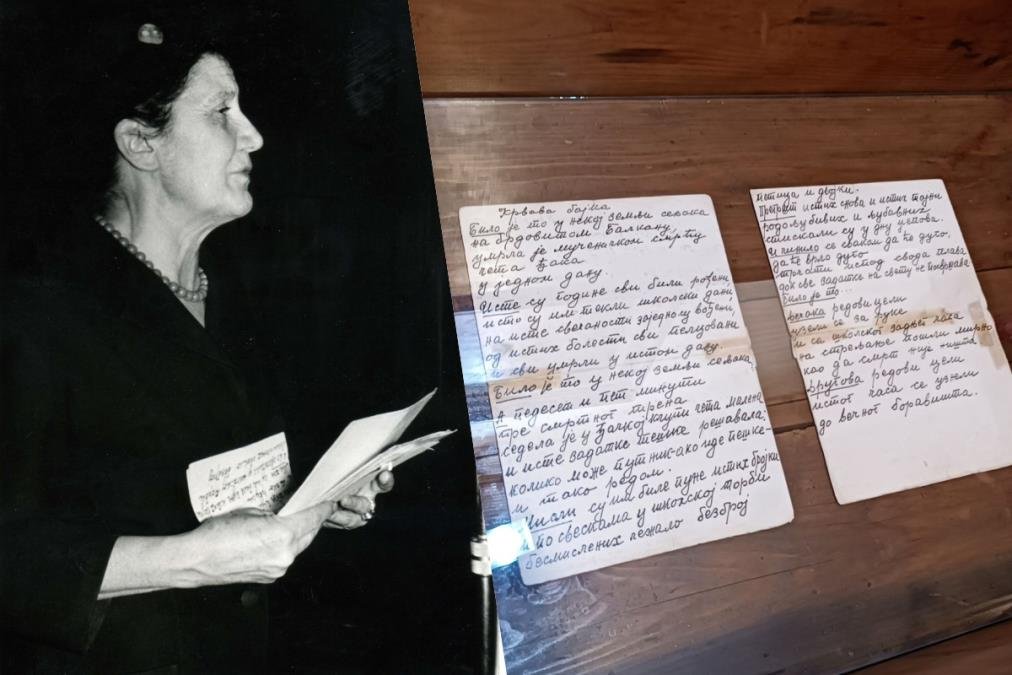 Крвава бајка
Било је то у некој земљи сељака
на брдовитом Балкану,
умрла је мученичком смрћу
чета ђака
у једном дану.
Исте су године сви били рођени,
исто су им текли школски дани,
на исте свечаности заједно су вођени,
од истих болести сви пелцовани
и сви умрли у истом дану.
Било је то у некој земљи сељака
А педесет и пет минути
пре смртног трена
седела је у ђачкој клупи чета малена
и исте задатке тешке решавала;
колико може путник ако иде пешке-
и тако редом.
Мисли су им биле пуне истих бројки
и по свескама у школској торби
бесмислених лежало безброј
петица и двојки.
Прегршт истих снова и истих тајни
родољубивих и љубавних
стискали су у дну џепова.
И чинило се сваком да ће дуго,
да ће врло дуго
трчати испод свода плава
док све задатке на свету не посвршава
Било је то...
Дечака редови цели
узели се за руке
и са школског задњег часа
на стрељање пошли мирно
као да смрт није ништа.
Другова редови цели
истог часа се узнели
до вечног боравишта.